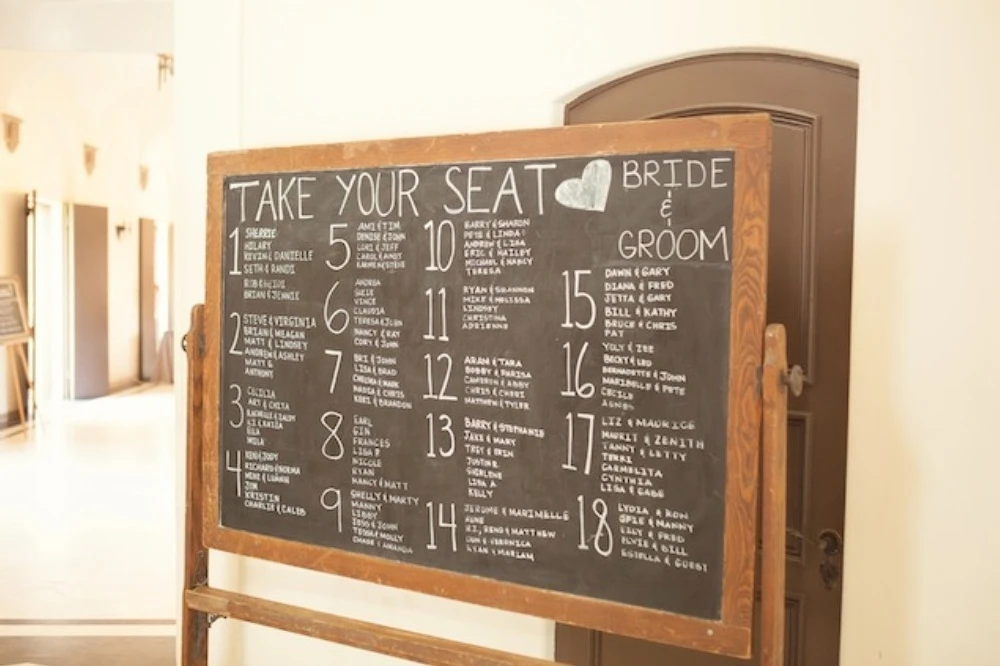 TAKE YOUR SEAT
BRIDE
&
GROOM
1
SHERRIE
HILARY
KEVIN & DANIELLE
SETH & RANDI
ROB & HEIDI
BRIAN & JENNIE
2
STEVE & VIRGINIA
BRIAN & MEAGAN
MATT & LINDSEY
ANDREW & ASHLEY
MATT G
ANTHONY
3
CECILIA
ART & CHITA
ELLA
MILA
4
KEN & JODY
RICHARD & NORMA
MIKE & LUANN
JIM
KRISTIN
CHARLIE & CALEB
5
AMI & TIM
DENISE & JOHN
LORI & JEFF
CAROL & ANDY
KAREN & STEVE
6
ANDREA
SUZIE
VINCE
CLAUDIA
TERESA & JOHN
NANCY & RAY
CORY & JOHN
7
BRI & JOHN
LISA & BRAD
CHELSEA & MARK
MARISA & CHRIS
KERI & BRANDON
8
EARL
GIN
FRANCES
LISA P
NICOLE
RYAN
NANCY & MATT
9
SHELLY & MARTY
MANNY
LIBBY
JESS & JOHN
TESSA & MOLLY
CHASE & AMANDA
10
BARRY & SHARON
PETE & LINDA
ANDREW & LISA
ERIC & HAILEY
MICHAEL & NANCY
TERESA
11
RYAN & SHANNON
MIKE & MELISSA
LINDSEY
CHRISTINA
ADRIENNE
12
ARAM & TARA
BOBBY & PARISA
CAMERON & ABBY
CHRIS & CHERI
MATTHEW & TYLER
13
BARRY & STEPHANIE
JAKE & MARY
TREY & ERIN
JUSTIN R.
SHIRLENE
LISA A
KELLY
14
JEROME & MARIMELLE
RENO & MATTHEW
& VERONICA
RYAN & MARIAM
15
DAWN & GARY
DIANA & FRED
JETTA & GARY
BILL & KATHY
BRUCE & CHRIS
PAT
16
YOLY & ZEE
BECKY & LEO
BERNADETTE & JOHN
MARIBELLE & PETE
CECILE
AGNES
17
LIZ & MAURICE
MAURIT & ZENITH
TANNY & LETTY
TERRI
CARMELITA
CYNTHIA
LISA & GABE
18
LYDIA & RON
OFIE & MANNY
LILY & FRED
ELVIE & BILL
ESTELLA & GUEST